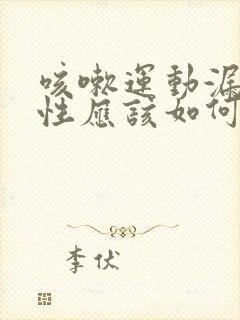 咳嗽運動漏
性應該如何
李伏